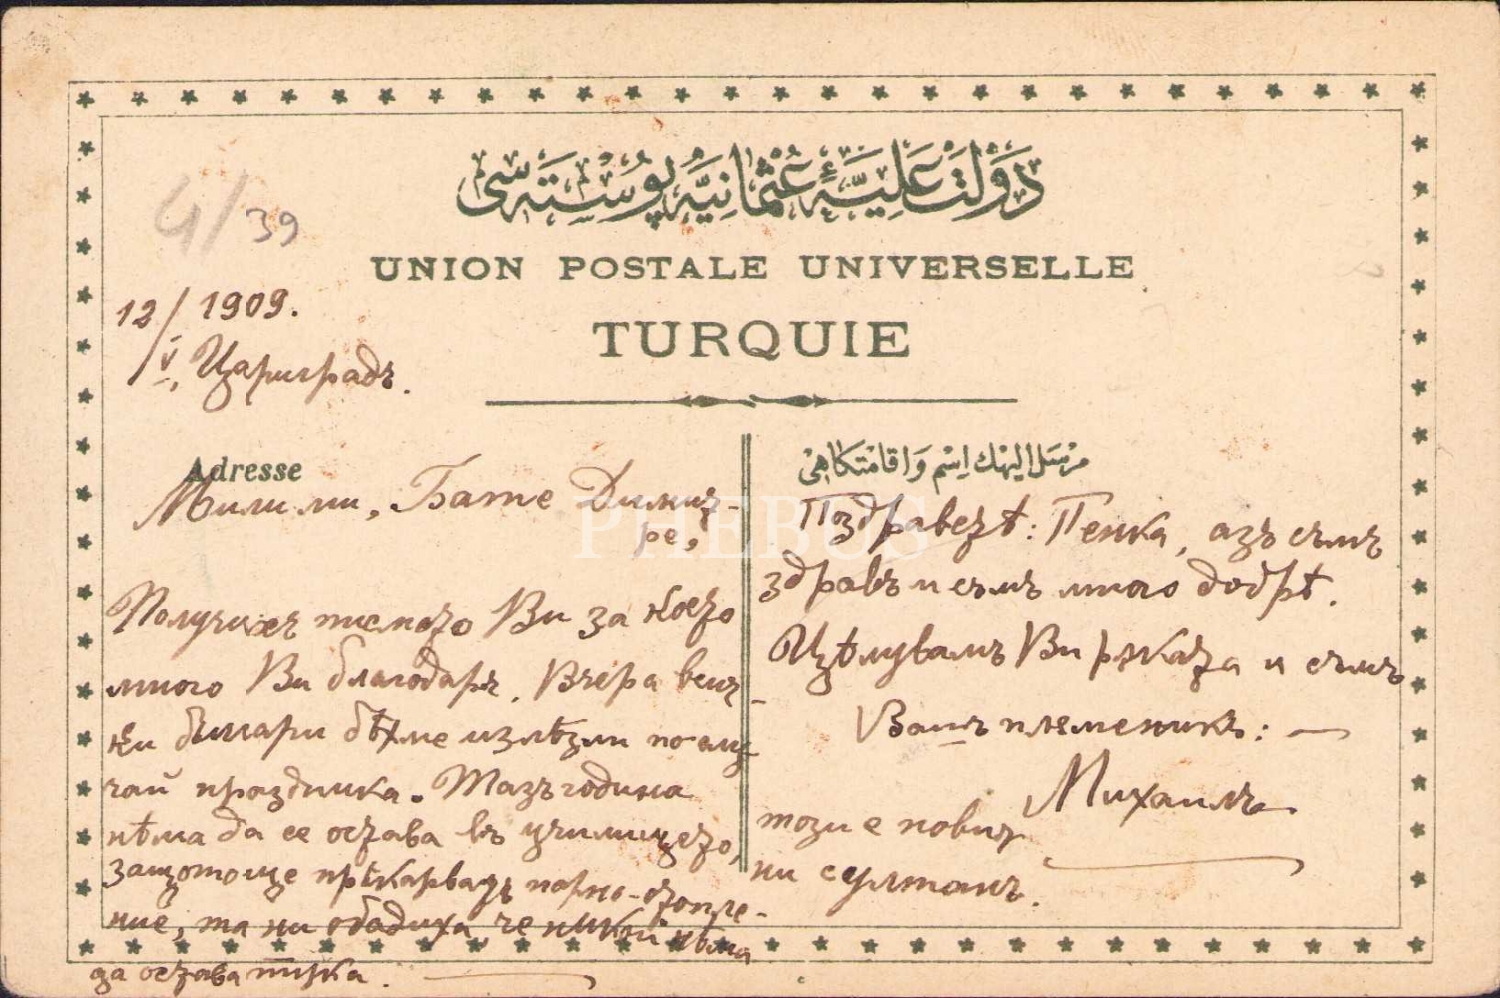 دَوْلَتِ عَلِيَّهٔ عُثْمَانِيَّه پُوسْتَه سی
UNION POSTALE UNIVERSELLE
TURQUIE
4/39
12/V 1909.
Цариградъ.
Adresse
مرسل اليهك اسم و اقامتكاهی
Мили ми, Бате Димит-
ре,
PHEBUS
Получихъ писмото Ви за което
много Ви благодарѫ. Вчера веич-
ки българи бѣхме излѣзли по слу-
чай праздника. Тазъ година
нѣма да се остава въ училището,
защото ще прѣкарватъ парно-отопле-
ние, та ни обадиха, че никой нѣма
да остава тука.
Поздраветѣ: Пенка, азъ съмъ
здравъ и съмъ много добрѣ.
Цѣлувамъ Ви рѫката и съмъ
Вашъ племеникъ: —
Михаилъ
този е новиѫ
ни султанъ.